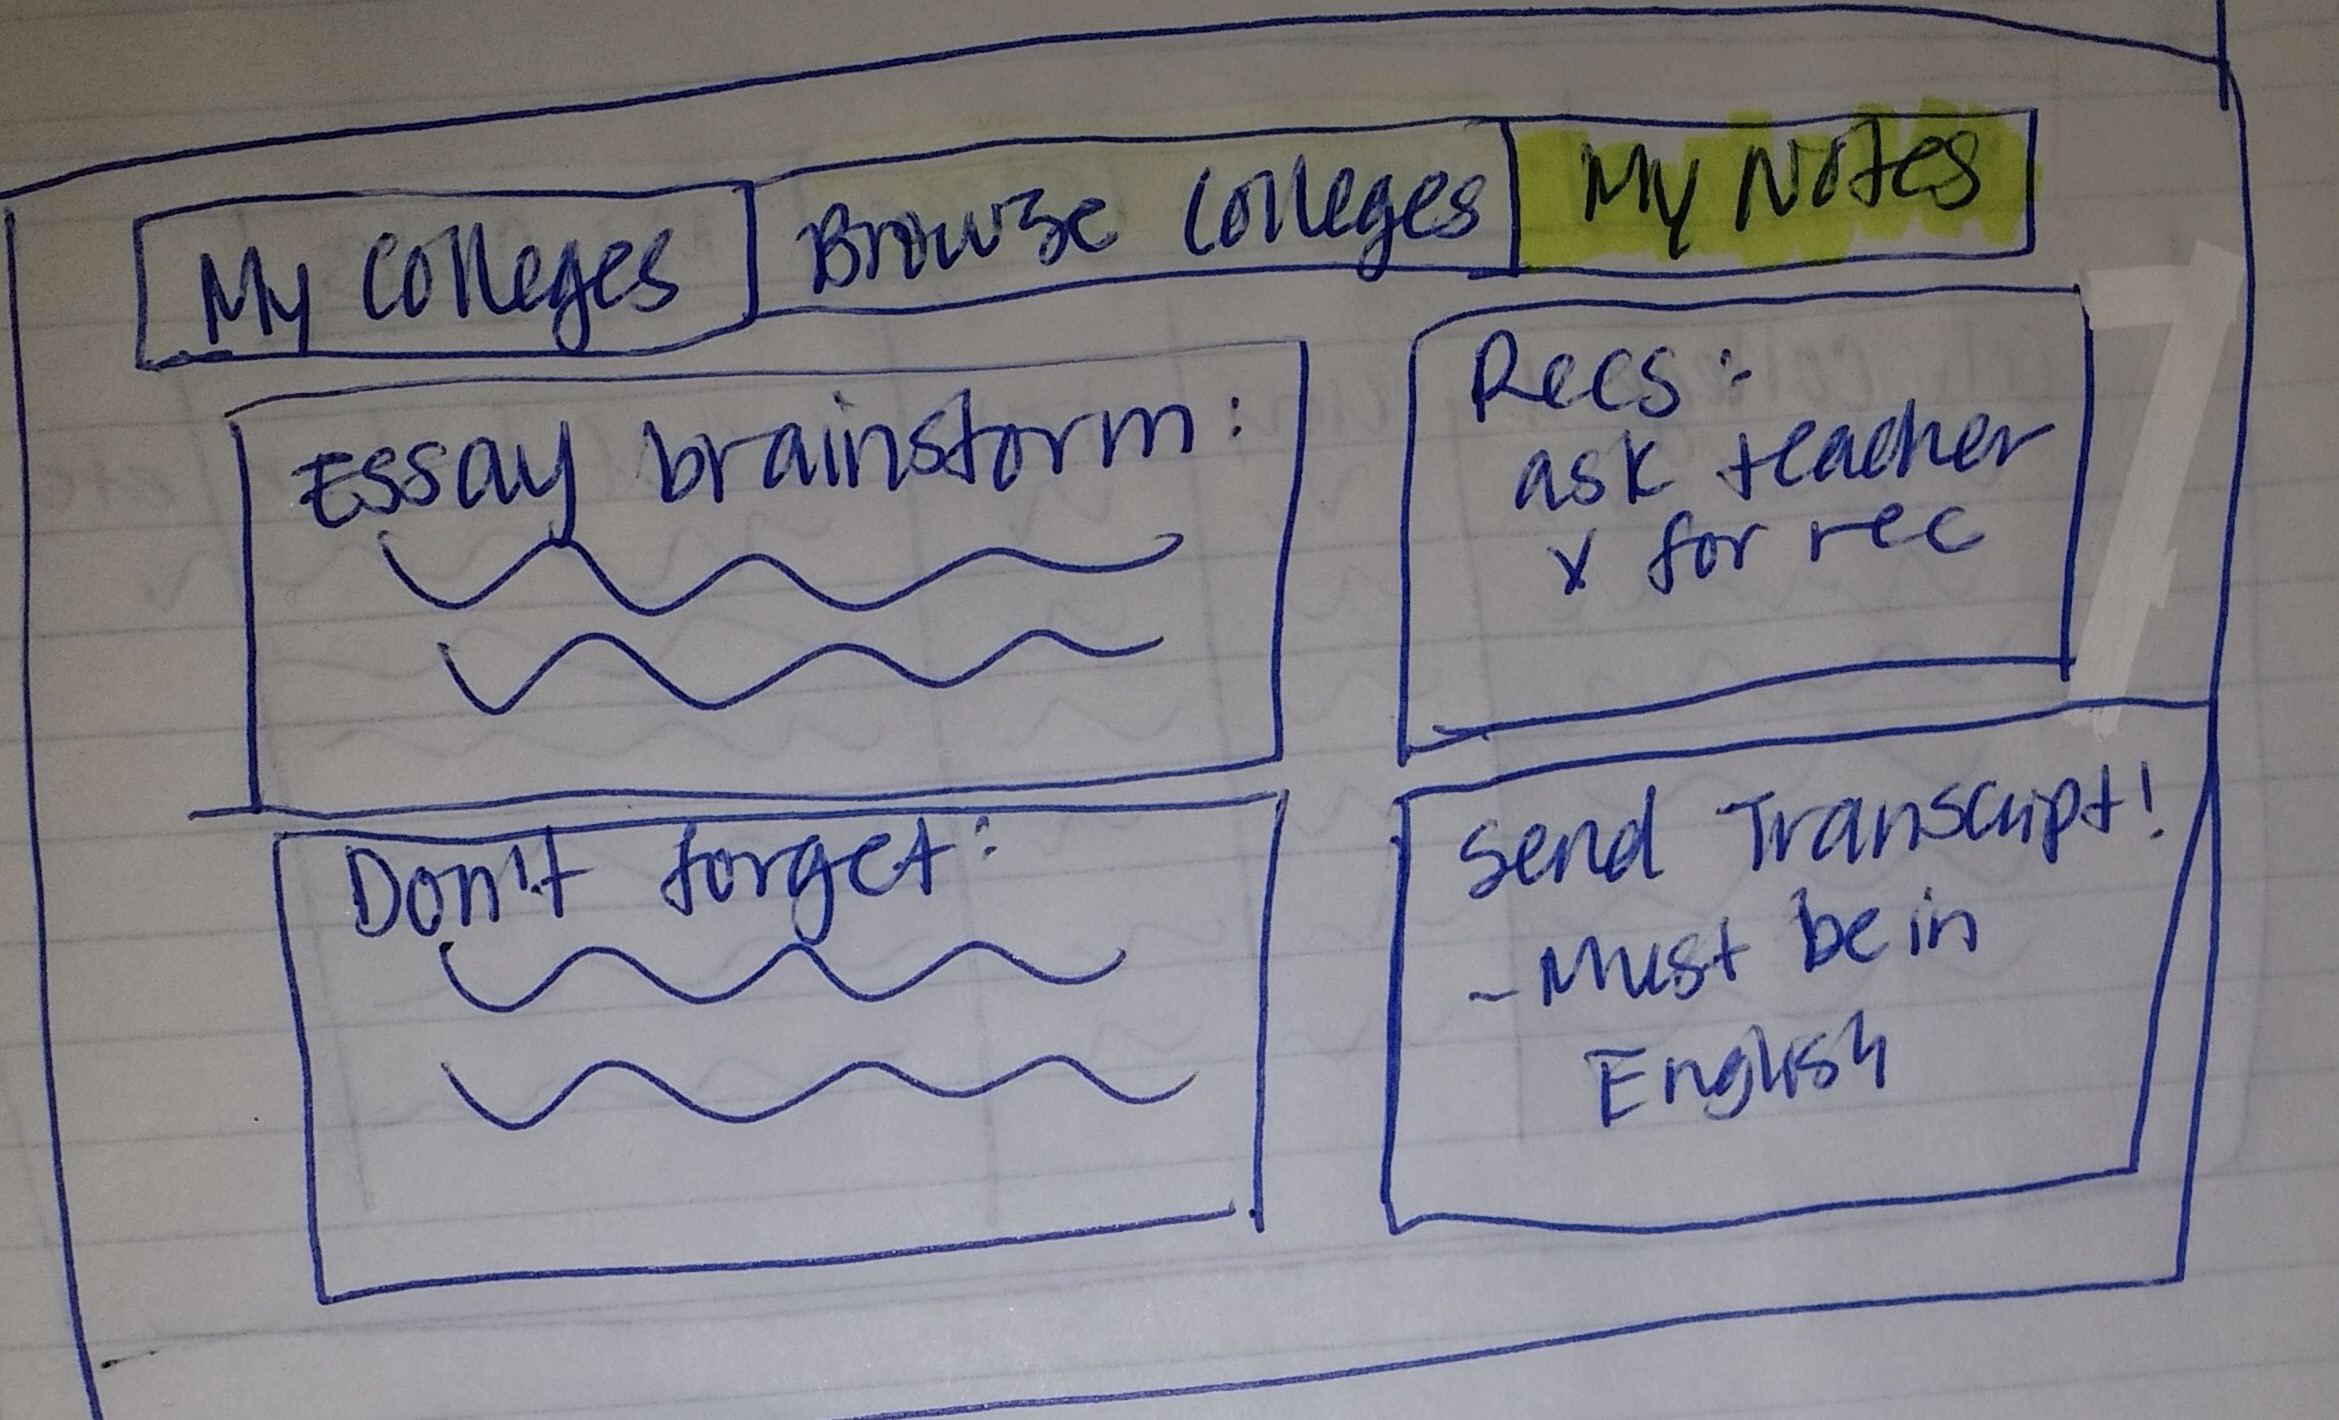 My Colleges
Browse Colleges
My Notes
Essay brainstorm:
Recs:
ask teacher
x for rec
Don't forget:
Send Transcript!
- Must be in
English
7